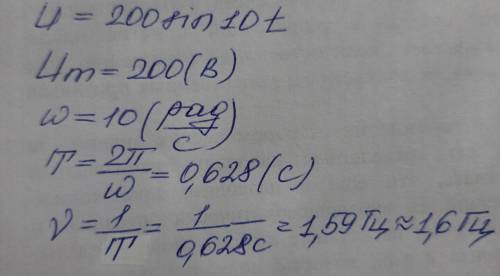 U = 200 sin 10t
Um = 200 (В)
ω = 10 (рад/с)
T = 2π/ω = 0,628 (с)
ν = 1/T = 1/0,628с = 1,59 Гц ≈ 1,6 Гц